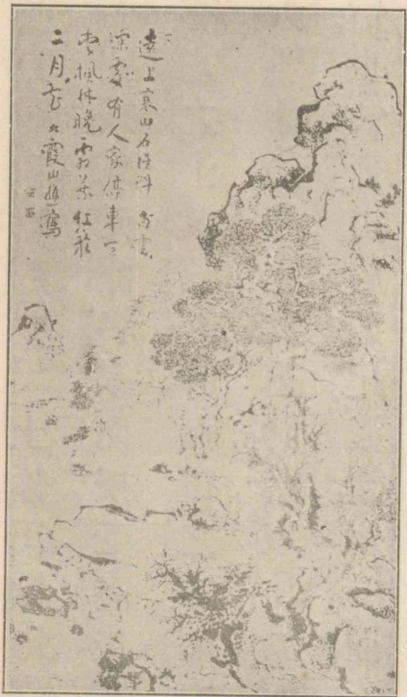 遠上寒山石徑斜白雲
深處有人家停車坐
愛楓林晚霜葉紅於
二月花九霞山樵寫